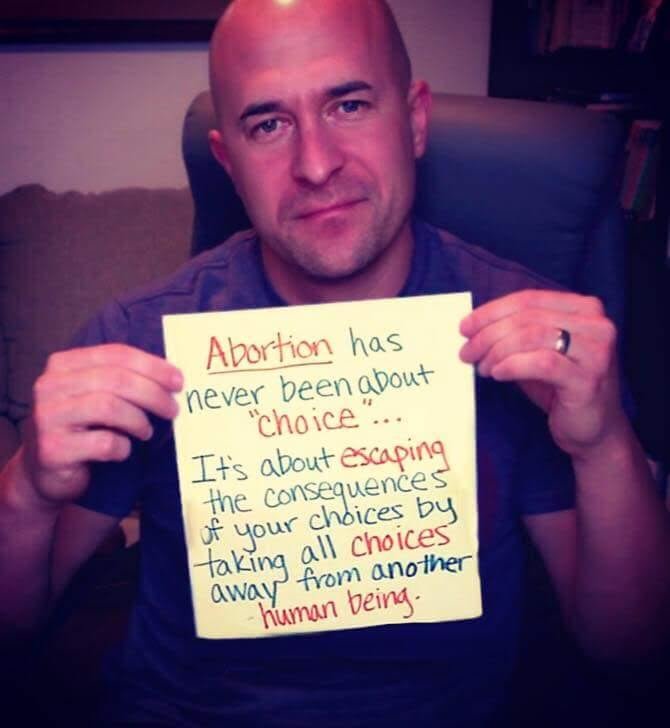 Abortion has
never been about
"choice"...
It's about escaping
the consequences
of your choices by
taking all choices
away from another
human being.